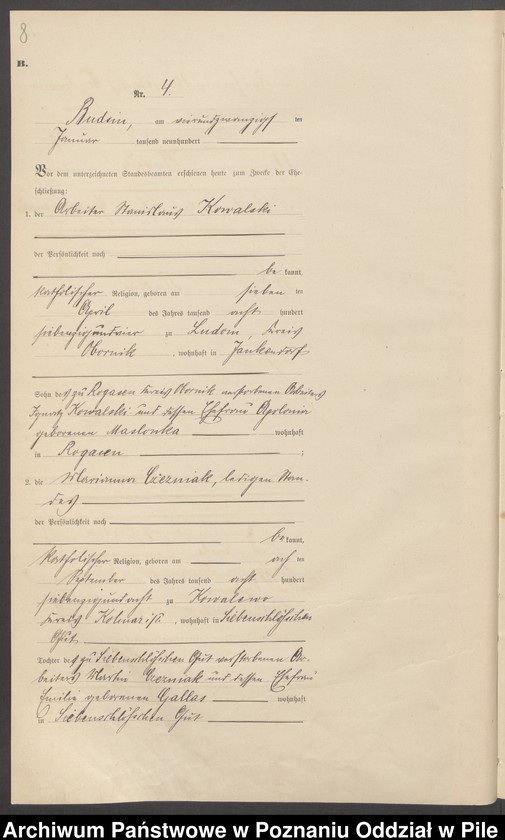 8
B.
Nr. 4.
Budsin, am vierundzwanzigsten
Januar tausend neunhundert
Vor dem unterzeichneten Standesbeamten erschienen heute zum Zwecke der Ehe-
schließung:
1. der Arbeiter Stanislaus Kowalski
der Persönlichkeit nach
be kannt,
katholischer Religion, geboren am sieben ten
April des Jahres tausend acht hundert
siebenzigundvier zu Ludom, Kreis
Obornik, wohnhaft in Jankendorf
Sohn des zu Rogasen Kreis Obornik verstorbenen Arbeiters
Ignatz Kowalski und dessen Ehefrau Apolonia
geborenen Maslonka wohnhaft
in Rogasen ;
2. die Marianna Cierniak, ledigen Stan-
des
der Persönlichkeit nach
be kannt,
katholischer Religion, geboren am ach ten
September des Jahres tausend acht hundert
siebenzigundacht zu Kowalewo
Kreis Kolmar i/P., wohnhaft in Siebenschlößchen
Gut
Tochter des zu Siebenschlößchen Gut verstorbenen Ar-
beiters Martin Cierniak und dessen Ehefrau
Emilie geborenen Gallas wohnhaft
in Siebenschlößchen Gut
Archiwum Państwowe w Poznaniu Oddział w Pile